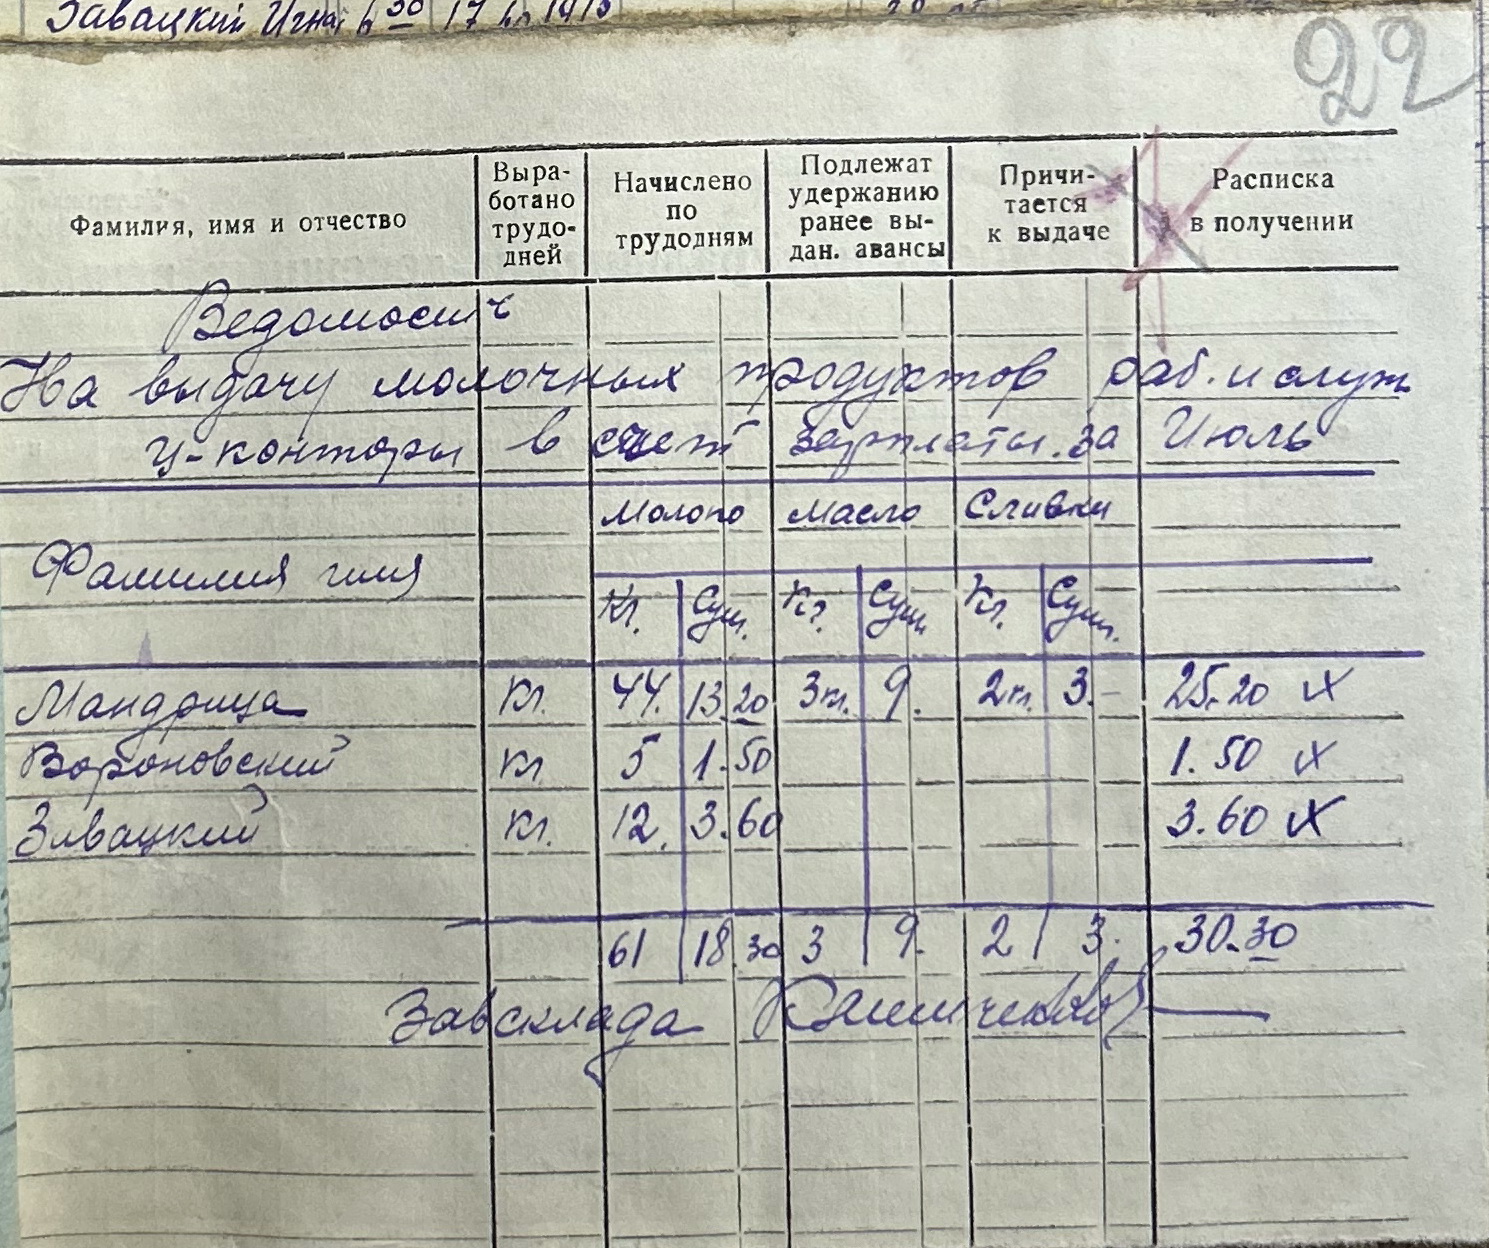 Завацкий Игнат 6 30 17
22
Фамилия, имя и отчество | Выработано трудодней | Начислено по трудодням | Подлежат удержанию ранее выдан. авансы | Причитается к выдаче | Расписка в получении
Ведомость
На выдачу молочных продуктов раб. и служ
ц-конторы в счет зарплаты за Июль
Молоко Масло Сливки
Фамилия имя
Кг. Сум. Кг. Сум Кг. Сум.
Мандрица Кг. 44. 13.20 3кг. 9. 2кг. 3.- 25.20 х
Вороновский Кг 5 1.50 1.50 х
Завацкий Кг. 12. 3.60 3.60 х
61 18.30 3 9. 2 3. 30.30
Завсклада